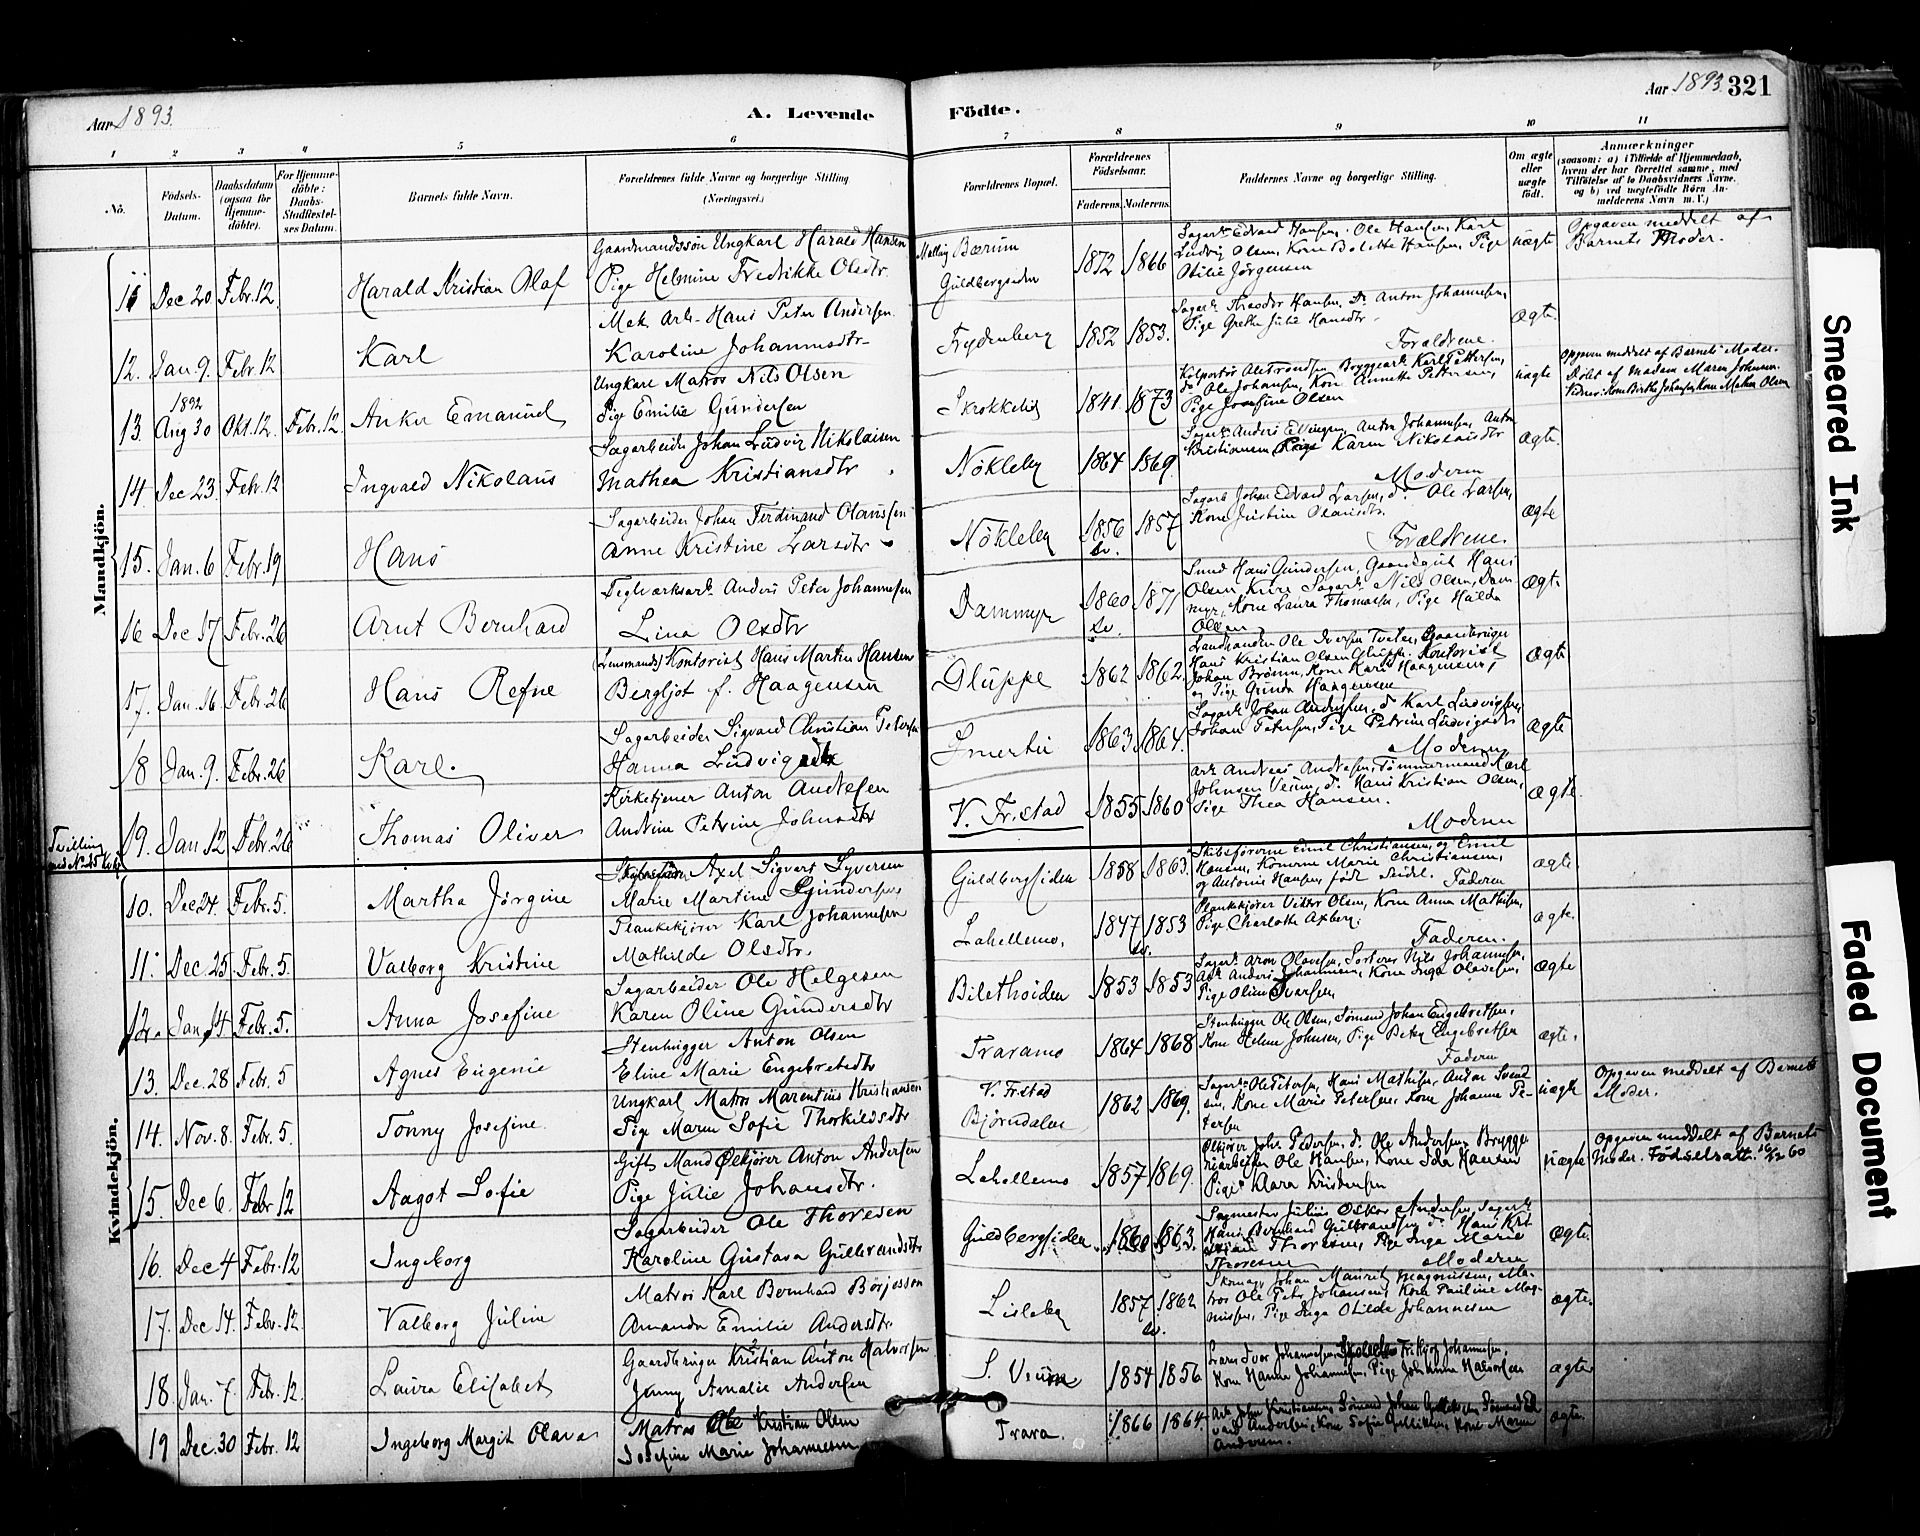 Aar 1893.
A. Levende
Födte.
Aar 1893. 321
1 2 3 4 5 6 7 8 9 10 11
No.
Födsels-Datum.
Daabsdatum (ogsaa for Hjemme-döbte).
For Hjemme-döbte: Daabs-Stadfæstel-ses Datum.
Barnets fulde Navn.
Forældrenes fulde Navne og borgerlige Stilling
(Næringsvei.)
Forældrenes Bopæl.
Forældrenes Födselsaar.
Faderens. Moderens.
Faddernes Navne og borgerlige Stilling.
Om ægte eller uægte født.
Anmærkninger
(saasom: a) i Tilfælde af Hjemmedaab, hvem der har forrettet samme, med Tilföielse af to Daabsvidners Navne. og b) ved uægtefödte Børn An-melderens Navn m. V.)
Mandkjön.
11 Dec 20. Febr. 12. Harald Kristian Olaf
Gaardmandssön Ungkarl Harald Hansen
Pige Helmine Fredrikke Olsdtr.
Bærum
Guldbergsiden
1872 1866
Sagarb. Edvard Hansen, Ole Hansen, Karl
Ludvig Olsen, Kone Bolette Hansen, Pige
Otilie Jörgensen
uægte
Opgaven meddelt af
Barnets Moder.
12. Jan. 9. Febr. 12 Karl
Mek. Arb. Hans Peter Andersen.
Karoline Johannesdtr
Frydenberg
1852 1853.
Sagarb. Theodor Hansen, Do Anton Johannesen,
Pige Grethe Julie Hansdtr.
Forældrene.
ægte.
1892
13. Aug 30 Okt. 12. Febr. 12. Anker Emanuel
Ungkarl Matros Nils Olsen
Pige Emilie Gundersen
Skrokkelid
1841. 1873
do Ole Johansen, Kone Annette Pettersen,
Pige Josefine Olsen
uægte
Opgaven meddelt af Barnets Moder.
Döbt af Madam Maren Johnsen.
Vidner: Kone Birthe Johansen, Kone Mathea Olsen
14. Dec 23. Febr. 12 Ingvald Nikolaus
Sagarbeider Johan Ludvig Nikolaisen
Mathea Kristiansdtr
Nökleby
1864 1869.
Sagarb. Anders Ellingsen, Anton Johannesen, Anton
Kristiansen, Pige Karen Nikolaisdtr
Moderen
ægte.
15. Jan. 6 Febr. 19 Hans
Sagarbeider Johan Ferdinand Olaussen
Anne Kristine Larsdtr
Nökleby
1856 1857
sv.
Sagarb. Johan Edvard Larsen, do Ole Larsen,
Kone Justine Olausdtr.
Forældrene.
ægte
16 Dec 17 Febr. 26 Arnt Bernhard
Teglværksarb. Anders Peter Johannesen
Lina Olsdtr
Dammyr
1860 1871
sv.
Smed Hans Gundersen, Gaardsgut Hans
Olsen Kure, Sagarb. Nils Olsen, Dam-
myr, Kone Laura Thomasen, Pige Hulda
Olsen
ægte
17. Jan. 16. Febr. 26 Hans Refne
(Lensmands) Kontorist Hans Martin Hansen
Bergljot f. Haagensen
Gluppe
1862 1862.
Landhandler Ole Iversen Tveter, Gaardbruger
Hans Kristian Olsen Gluppe, Kontorist
Johan Brönn, Kone Karen Haagensen,
og Pige Gunda Haagensen
ægte
18 Jan. 9. Febr. 26 Karl.
Sagarbeider Sigvard Christian Petersen
Hanna Ludvigsdtr
Smertu
1863 1864.
Sagarb. Johan Andersen, do Karl Ludvigsen,
Johan Petersen, Pige Petrine Ludvigsdtr
Moderen
ægte
Tvilling
19. Jan 12 Febr. 26 Thomas Oliver
Kirketjener Anton Andresen
Andrine Petrine Johnsdtr
V. Fr.stad
1855 1860
Arb. Andreas Andresen, Tömmermand Karl
Johnsen Veum, do Hans Kristian Olsen,
Pige Thea Hansen.
Moderen
ægte.
Kvindekjön.
10. Dec 24. Febr. 5. Martha Jörgine
Axel Sigvart Syversen
Marie Martine Gundersen
Guldbergsiden
1858 1863.
Skibsförerne Emil Christiansen, og Emil
Hansen, Konerne Marie Christiansen,
og Antonie Hansen, född Seidel.
Faderen
ægte.
11. Dec 25. Febr. 5. Valborg Kristine
Plankekjörer Karl Johannesen
Mathilde Olsdtr.
Lahellemo.
1847 1853
sv.
Plankekjörer Viktor Olsen, Kone Anna Mathisen,
Pige Charlotte Axberg.
Faderen.
ægte.
12. Jan 4 Febr. 5. Anna Josefine
Sagarbeider Ole Helgesen
Karen Oline Gundersdtr
Bilethsiden
1853 1853
Sagarb. Aron Olavesen, Sorterer Nils Johannesen,
Arb. Anders Johannesen, Kone Inga Olavesen,
Pige Oline Ivarsen.
ægte
13. Dec. 28 Febr. 5 Agnes Eugenie
Stenhugger Anton Olsen
Eline Marie Engebretsdtr
Traramo
1864 1868
Stenhugger Ole Olsen, Sömand Johan Engebretsen,
Kone Helene Johnsen, Pige Betzy Engebretsen
Faderen
ægte.
14. Nov. 8. Febr. 5. Tonny Josefine.
Ungkarl Matros Marentius Kristiansen
Pige Maren Sofie Thorkildsdtr
V. Fr.stad
Björndalen
1862 1869.
Sagarb. Ole Petersen, Hans Mathisen, Anton Svend-
sen, Kone Marie Petersen, Kone Johanne Pe-
tersen
uægte
Opgaven meddelt af Barnets
Moder.
15. Dec 6. Febr. 12 Aagot Sofie
Gift Mand Ölkjörer Anton Andersen
Pige Julie Johansdtr.
Lahellemo
1857 1869.
Ölkjörer Johs. Pedersen, do Ole Andersen, Brygge-
riarbeider Ole Hansen, Kone Ida Hansen
Pige Klara Kristensen
uægte
Opgaven meddelt af Barnets
Moder. Födselsatt.
16. Dec 4 Febr. 12 Ingeborg
Sagarbeider Ole Thoresen
Karoline Gustava Gulbrandsdtr
Guldbergsiden
1860 1863.
Sagmester Julius Oskar Andersen, Sagarb.
Hans Bernhard Gulbrandsen, do Hans Kri-
stian Thoresen, Pige Inga Marie
Thoresen
Moderen
ægte.
17. Dec 14. Febr. 12. Valborg Juline
Matros Karl Bernhard Börjesson
Amanda Emilie Andersdtr
Lisleby
1857 1862
sv.
Skomag. Johan Mauritz Magnussen, Ma-
tros Ole Petr Johansen, Kone Pauline Mag-
nussen, Pige Inga Otilde Johannesen
ægte.
18. Jan. 7. Febr. 12. Laura Elisabet
Gaardbruger Kristian Anton Halvorsen
Jenny Amalie Andersen
S. Veum
1854 1856
Ivar Johannesen, Fritjof Johannesen,
Kone Hanna Johannesen, Pige Johanne Halvorsen
ægte
19 Dec. 30 Febr. 12 Ingeborg Margit Olava
Matros Ole Kristian Olsen
Josefine Marie Johannesen
Trara.
1866 1864.
Arb. John Kristiansen, Sömand Johan
vard Andersen, Kone Sofie, Kone Maren
Andersen.
ægte.
Smeared Ink
Faded Document